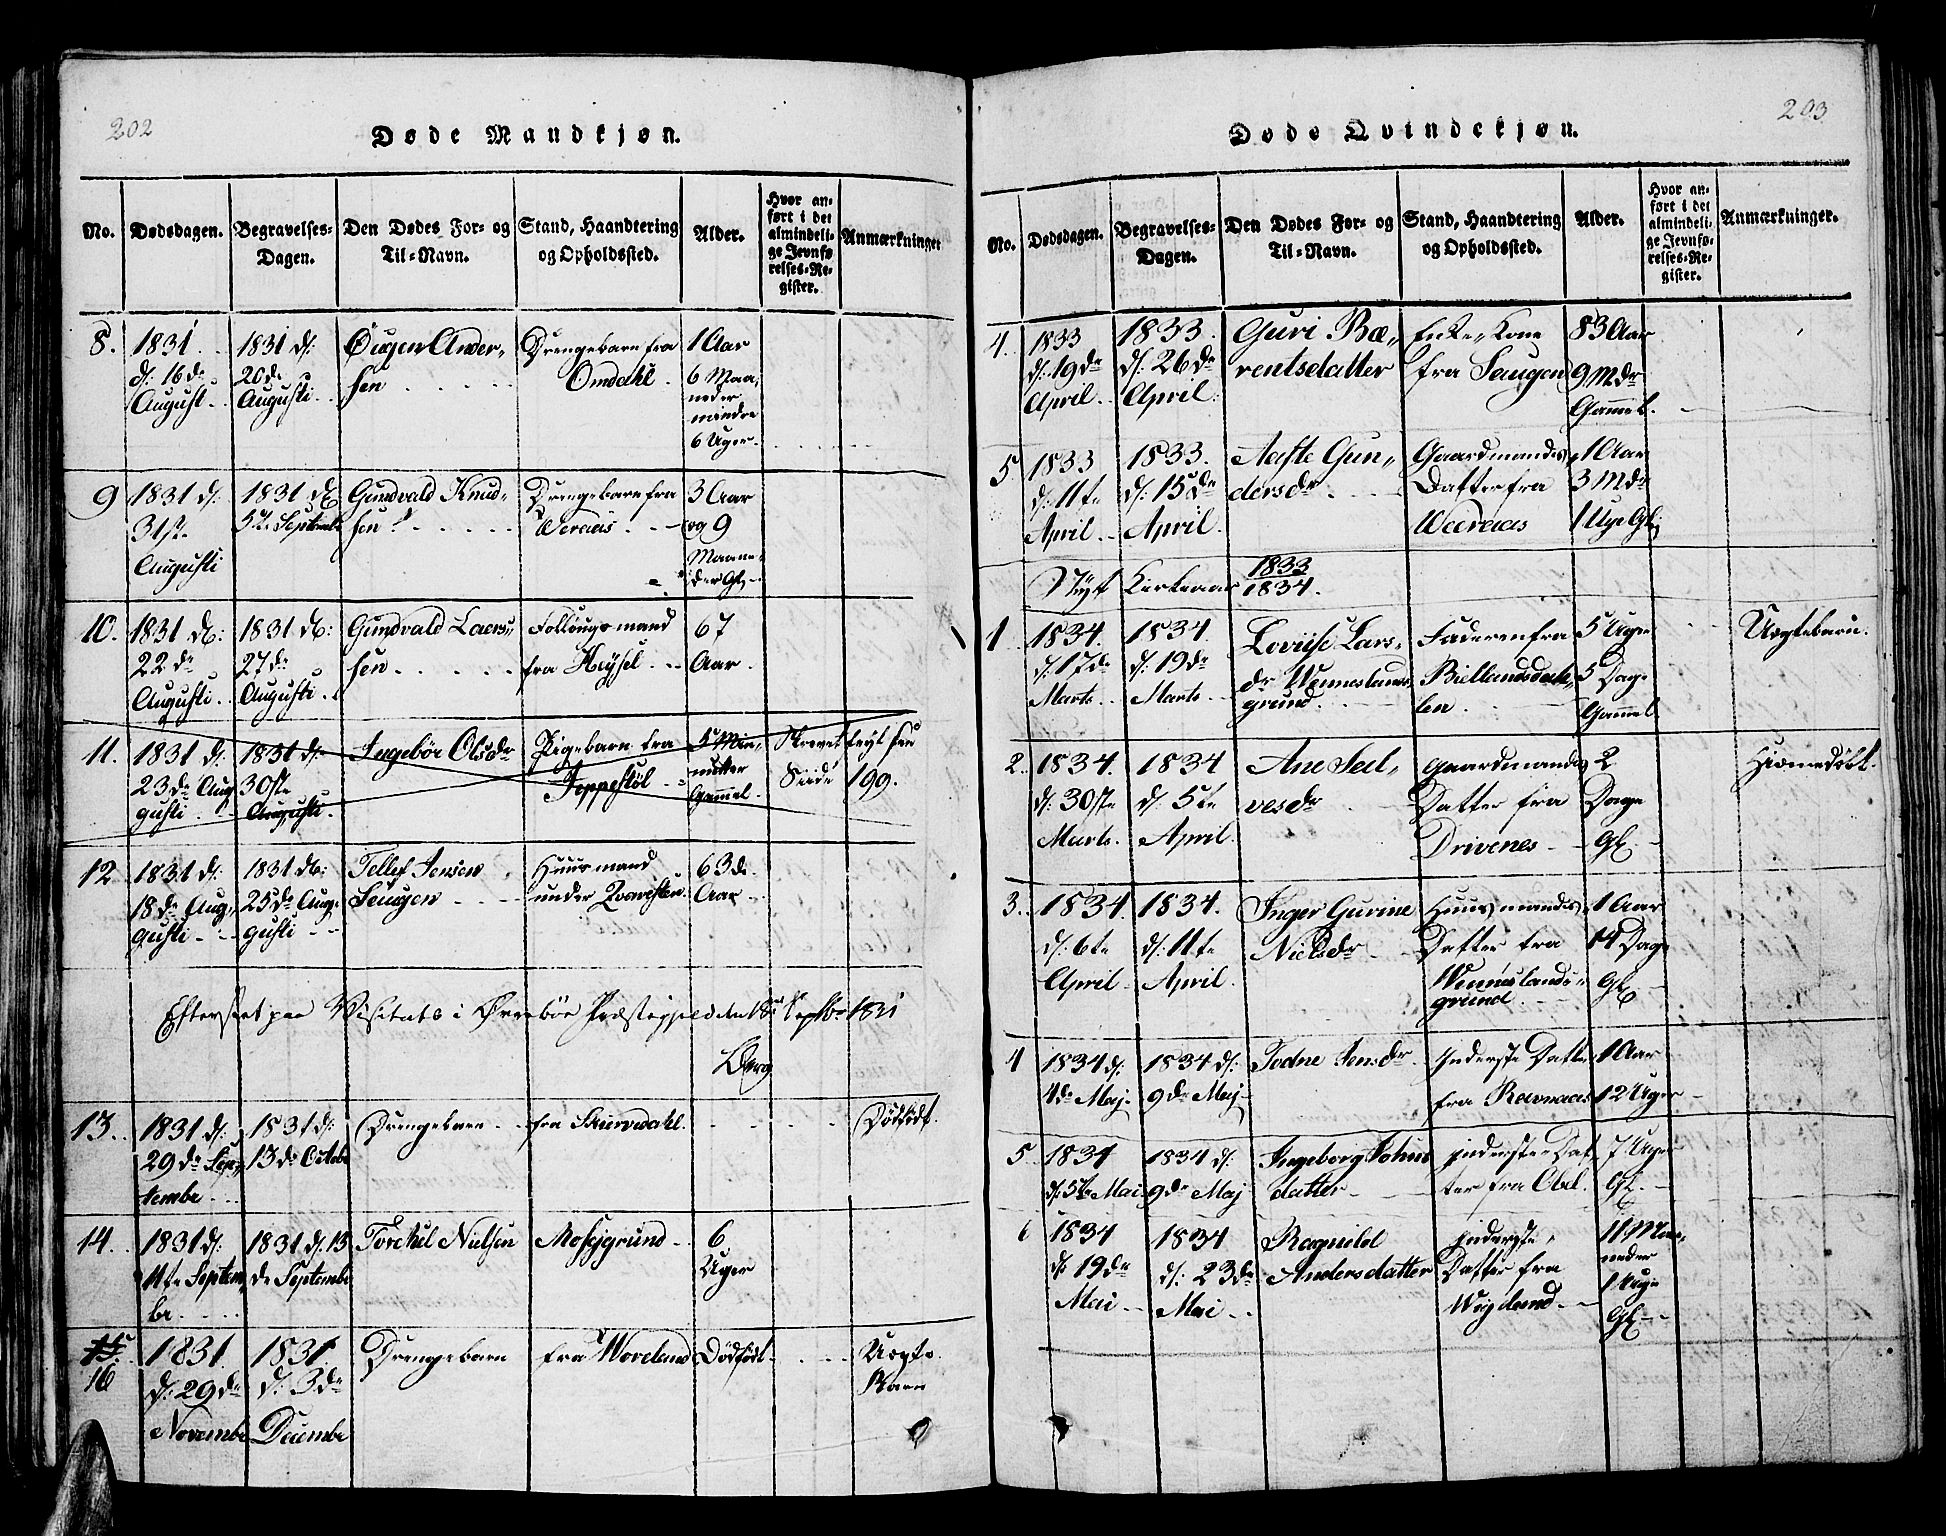 202
Døde Mandkjøn.
No. Dødsdagen. Begravelses-Dagen. Den Dødes For- og Til-Navn. Stand, Haandtering og Opholdssted. Alder. Hvor anført i det almindelige Jevnførelses-Register. Anmærkninger
8. 1831 d: 16de August. 1831 d: 20de Augusti. Ougen Andersen Drengebarn fra Omdahl. 1 Aar 6 Maaneder mindre 6 Uger.
9 1831 d: 31st. Augusti 1831 d. 5te Septembr Gundvald Knudsen Drengebarn fra Weraas. 3 Aar og 9 Maaneder Gl.
10. 1831 d: 22de Augusti. 1831 d: 27de Augusti. Gundvald Laersen Follougsmand fra Heysel. 67 Aar.
11. 1831 d: 23de Augusti. 1831 d: 30ste Augusti. Ingebør Olsdr Pigebarn fra Jeppestøl 5 Minutter Gammel. Skrevet feyl see Siide 199.
12 1831 d: 18de Augusti 1831 d: 25de Augusti Tellef Jensen Seugen Huusmand under Qvarsten. 63de Aar
Efterseet paa Visitats i Øvrebøe Præstegjeld den 18 Septbr 1831
Berg
13. 1831 d: 29de September 1831 d: 13de Octobr Drengebarn fra Skiervedahl. Dødfødt.
14. 1831 d: 11te Septembr. 1831 d. 15de Septembr Torckel Nielsen Mosejgrund 6 Uger
15. 16 1831. d: 29de Novembr 1831. d: 3de Decembr Drengebarn fra Woreland Dødfødt Uegte Barn
203
Døde Qvindekjøn.
No. Dødsdagen. Begravelses-Dagen. Den Dødes For- og Til-Navn. Stand, Haandtering og Opholdssted. Alder. Hvor anført i det almindelige Jevnførelses-Register. Anmærkninger.
4. 1833 d: 19de April. 1833. d: 26de April. Guri Bærentsdatter Enke-Kone fra Saugen 83 Aar 9 Mdr Gammel.
5 1833 d: 11te April. 1833. d: 15de April. Aaste Gundersdr Gaardmands Datter fra Weeraas 1 Aar 3 Mdr 1 Uge Gl.
Nyt Kirkeaar 1833/1834.
1 1834. d: 17de Marts. 1834. d: 19de Marts Lovise Larsdr Wenneslandsgrund. Faderen fra Biellandsdahlen. 5 Uger 5 Dage Gammel Uegtebarn.
2. 1834. d: 30ste Marts. 1834 d. 5te April. Ane Selvesdr gaardmands Datter fra Drivenes 2 Dage Gl. Hiemmedøbt.
3. 1834. d: 6te April 1834. d: 11te April. Inger Gurine Nielsdr Huusmands Datter fra Wenneslandsgrund. 1 Aar 14 Dage Gl.
4 1834 d: 4de Maj. 1834 d: 9de Maj Todne Jensdr Inderste Datter fra Ravnaas 1 Aar 12 Uger
5 1834 d: 5te Mai. 1834 d: 9de Maj Ingeborg Johnsdatter inderste Datter fra Obel. 7 Uger Gl.
6 1834 d: 19de Mai 1834 d: 23de Mai Ragnild Andersdatter inderste Datter fra Wigeland. 11 Maaneder 1 Uge Gl.